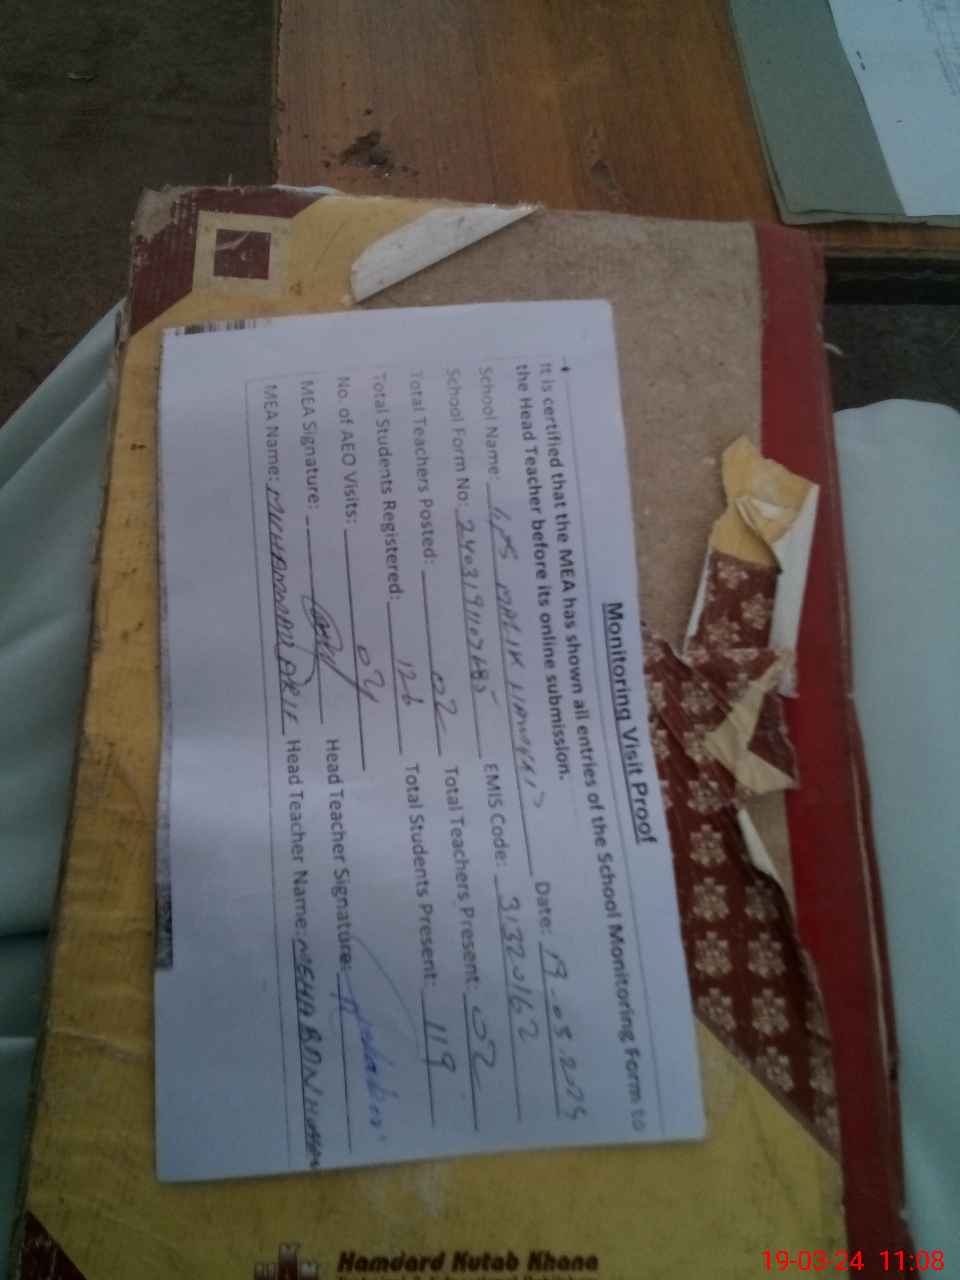 Monitoring Visit Proof
It is certified that the MEA has shown all entries of the School Monitoring Form to
the Head Teacher before its online submission.
School Name: GPS MALIK Date: 19.03.2024
School Form No: EMIS Code: 31320162
Total Teachers Posted: 02 Total Teachers Present: 02
Total Students Registered: 126 Total Students Present: 119
No. of AEO Visits: 04
MEA Signature: Head Teacher Signature:
MEA Name: MUHAMMAD ARIF Head Teacher Name:
Hamdard Kutab Khana
19-03-24 11:08